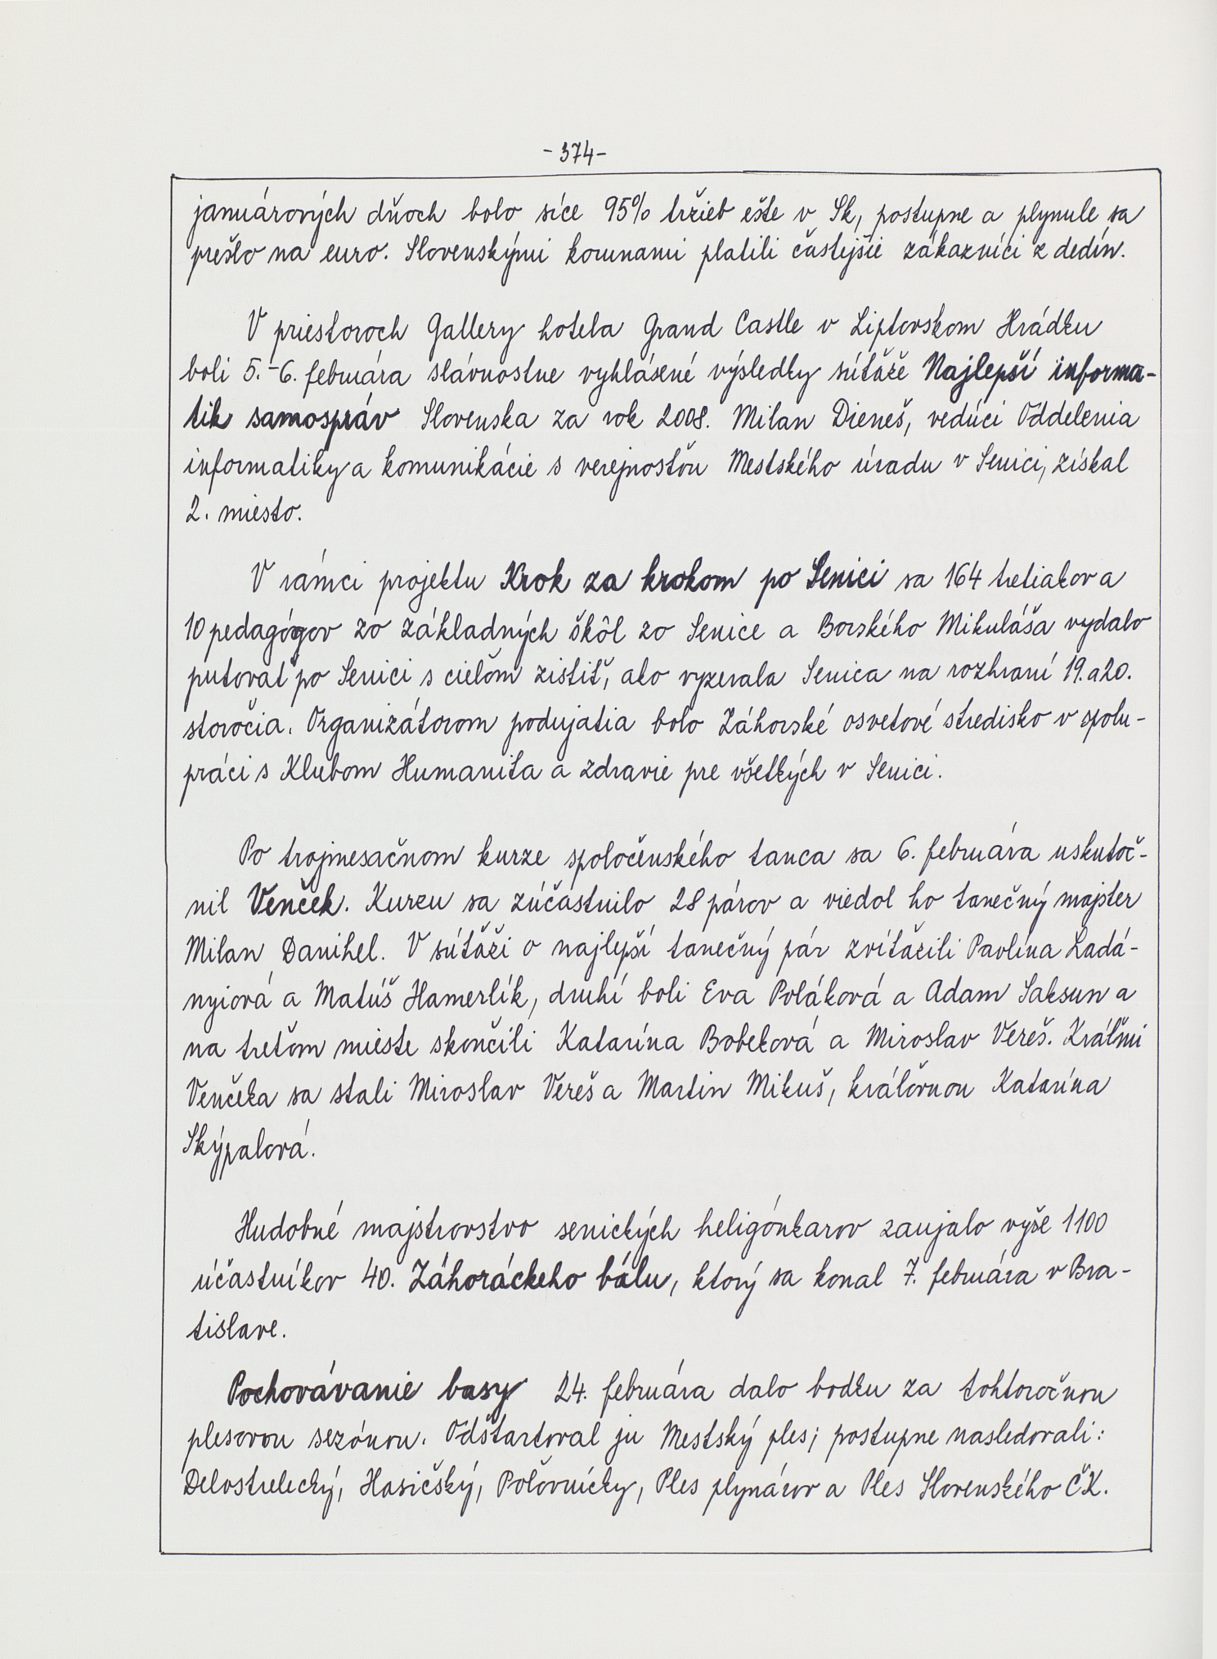 -374-
januárových dňoch bolo síce 95% tržieb ešte v Sk, postupne a plynule sa
prešlo na euro. Slovenskými korunami platili častejšie zákazníci z dedín.
V priestoroch Gallery hotela Grand Castle v Liptovskom Hrádku
boli 5.-6. februára slávnostne vyhlásené výsledky súťaže Najlepší informa-
tik samospráv Slovenska za rok 2008. Milan Dieneš, vedúci Oddelenia
informatiky a komunikácie s verejnosťou Mestského úradu v Senici, získal
2. miesto.
V rámci projektu Krok za krokom po Senici sa 164 tretiakov a
10 pedagógov zo základných škôl zo Senice a Borského Mikuláša vydalo
putovať po Senici s cieľom zistiť, ako vyzerala Senica na rozhraní 19. a 20.
storočia. Organizátorom podujatia bolo Záhorské osvetové stredisko v spolu-
práci s Klubom Humanita a zdravie pre všetkých v Senici.
Po trojmesačnom kurze spoločenského tanca sa 6. februára uskutoč-
nil Venček. Kurzu sa zúčastnilo 28 párov a viedol ho tanečný majster
Milan Danihel. V súťaži o najlepší tanečný pár zvíťazili Pavlína Ladá-
nyiová a Matúš Hamerlík, druhí boli Eva Poláková a Adam Saksun a
na treťom mieste skončili Katarína Bobeková a Miroslav Vereš. Kráľmi
Venčeka sa stali Miroslav Vereš a Martin Mikuš, kráľovnou Katarína
Skýpalová.
Hudobné majstrovstvo senických heligónkarov zaujalo vyše 1100
účastníkov 40. Záhoráckeho bálu, ktorý sa konal 7. februára v Bra-
tislave.
Pochovávanie basy 24. februára dalo bodku za tohtoročnou
plesovou sezónou. Odštartoval ju Mestský ples; postupne nasledovali:
Delostrelecký, Hasičský, Poľovnícky, Ples plynárov a Ples Slovenského ČK.